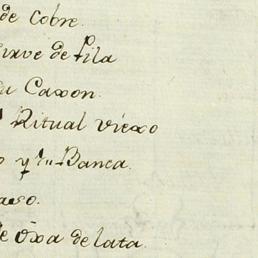 de Cobre.
sirve de Pila
su Caxon.
Ritual viexo
y su Banca.
de oxa de lata.